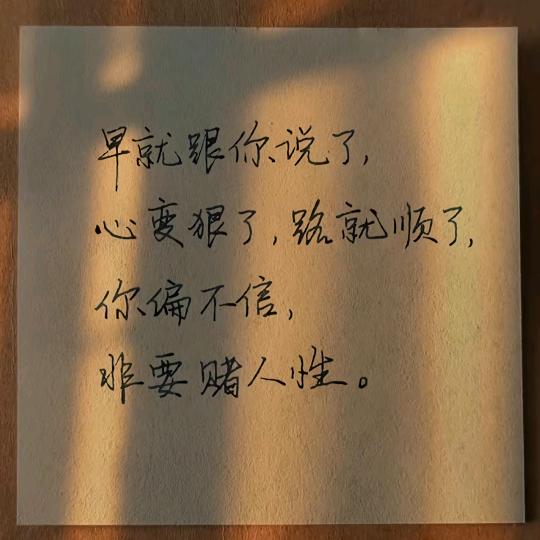 早就跟你说了，
心变狠了，路就顺了，
你偏不信，
非要赌人性。